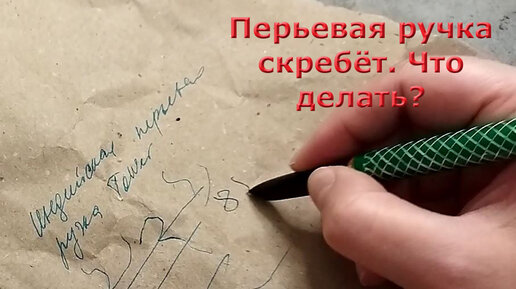 Перьевая ручка
скребёт. Что
делать?
Индийская перьевая
ручка Tower
8